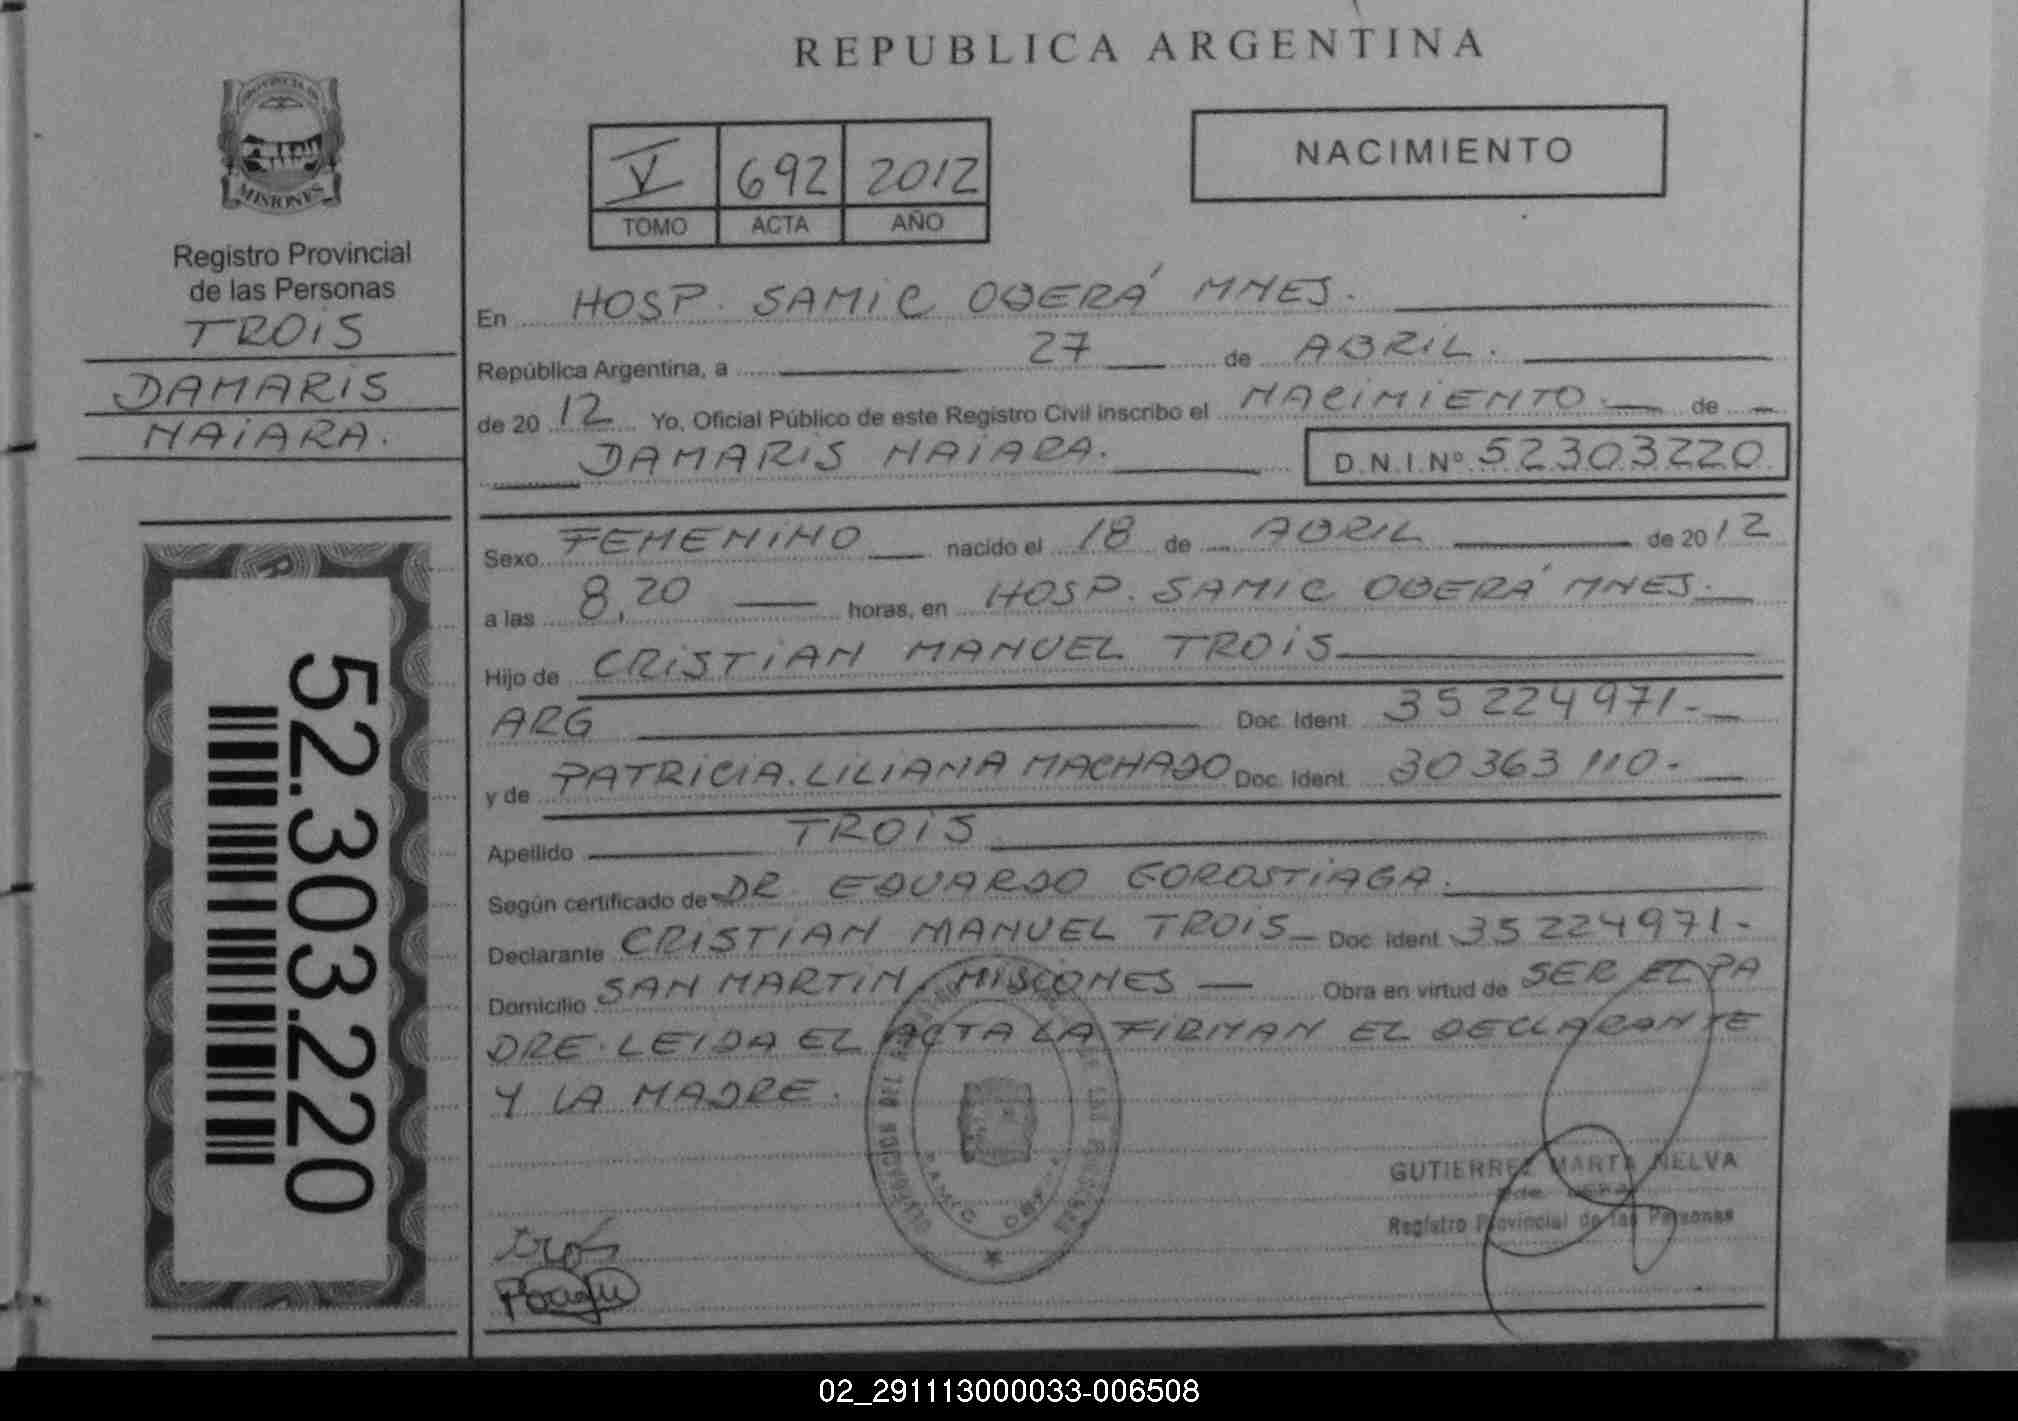 REPUBLICA ARGENTINA
PROVINCIA DE
MISIONES
Registro Provincial
de las Personas
TROIS
DAMARIS
NAIARA.
52.303.220
V 692 2012
TOMO ACTA AÑO
NACIMIENTO
En HOSP. SAMIC OBERÁ MNES.
República Argentina, a 27 de ABRIL.
de 20 12 Yo, Oficial Público de este Registro Civil inscribo el NACIMIENTO. de
DAMARIS NAIARA. D.N.I.Nº 52303220
Sexo FEMENINO nacido el 18 de ABRIL de 20 12
a las 8,20 horas, en HOSP. SAMIC OBERÁ MNES.
Hijo de CRISTIAN MANUEL TROIS
ARG Doc. Ident. 35 224 971.-
y de PATRICIA LILIANA MACHADO Doc. Ident. 30 363 110.-
Apellido TROIS
Según certificado de DR EDUARDO GOROSTIAGA.
Declarante CRISTIAN MANUEL TROIS Doc. Ident. 35 224971.-
Domicilio SAN MARTIN, MISIONES Obra en virtud de SER EL PA
DRE. LEIDA EL ACTA LA FIRMAN EL DECLARANTE
Y LA MADRE.
GUTIERREZ MARTA NELVA
Registro Provincial de las Personas
Trois
02_291113000033-006508